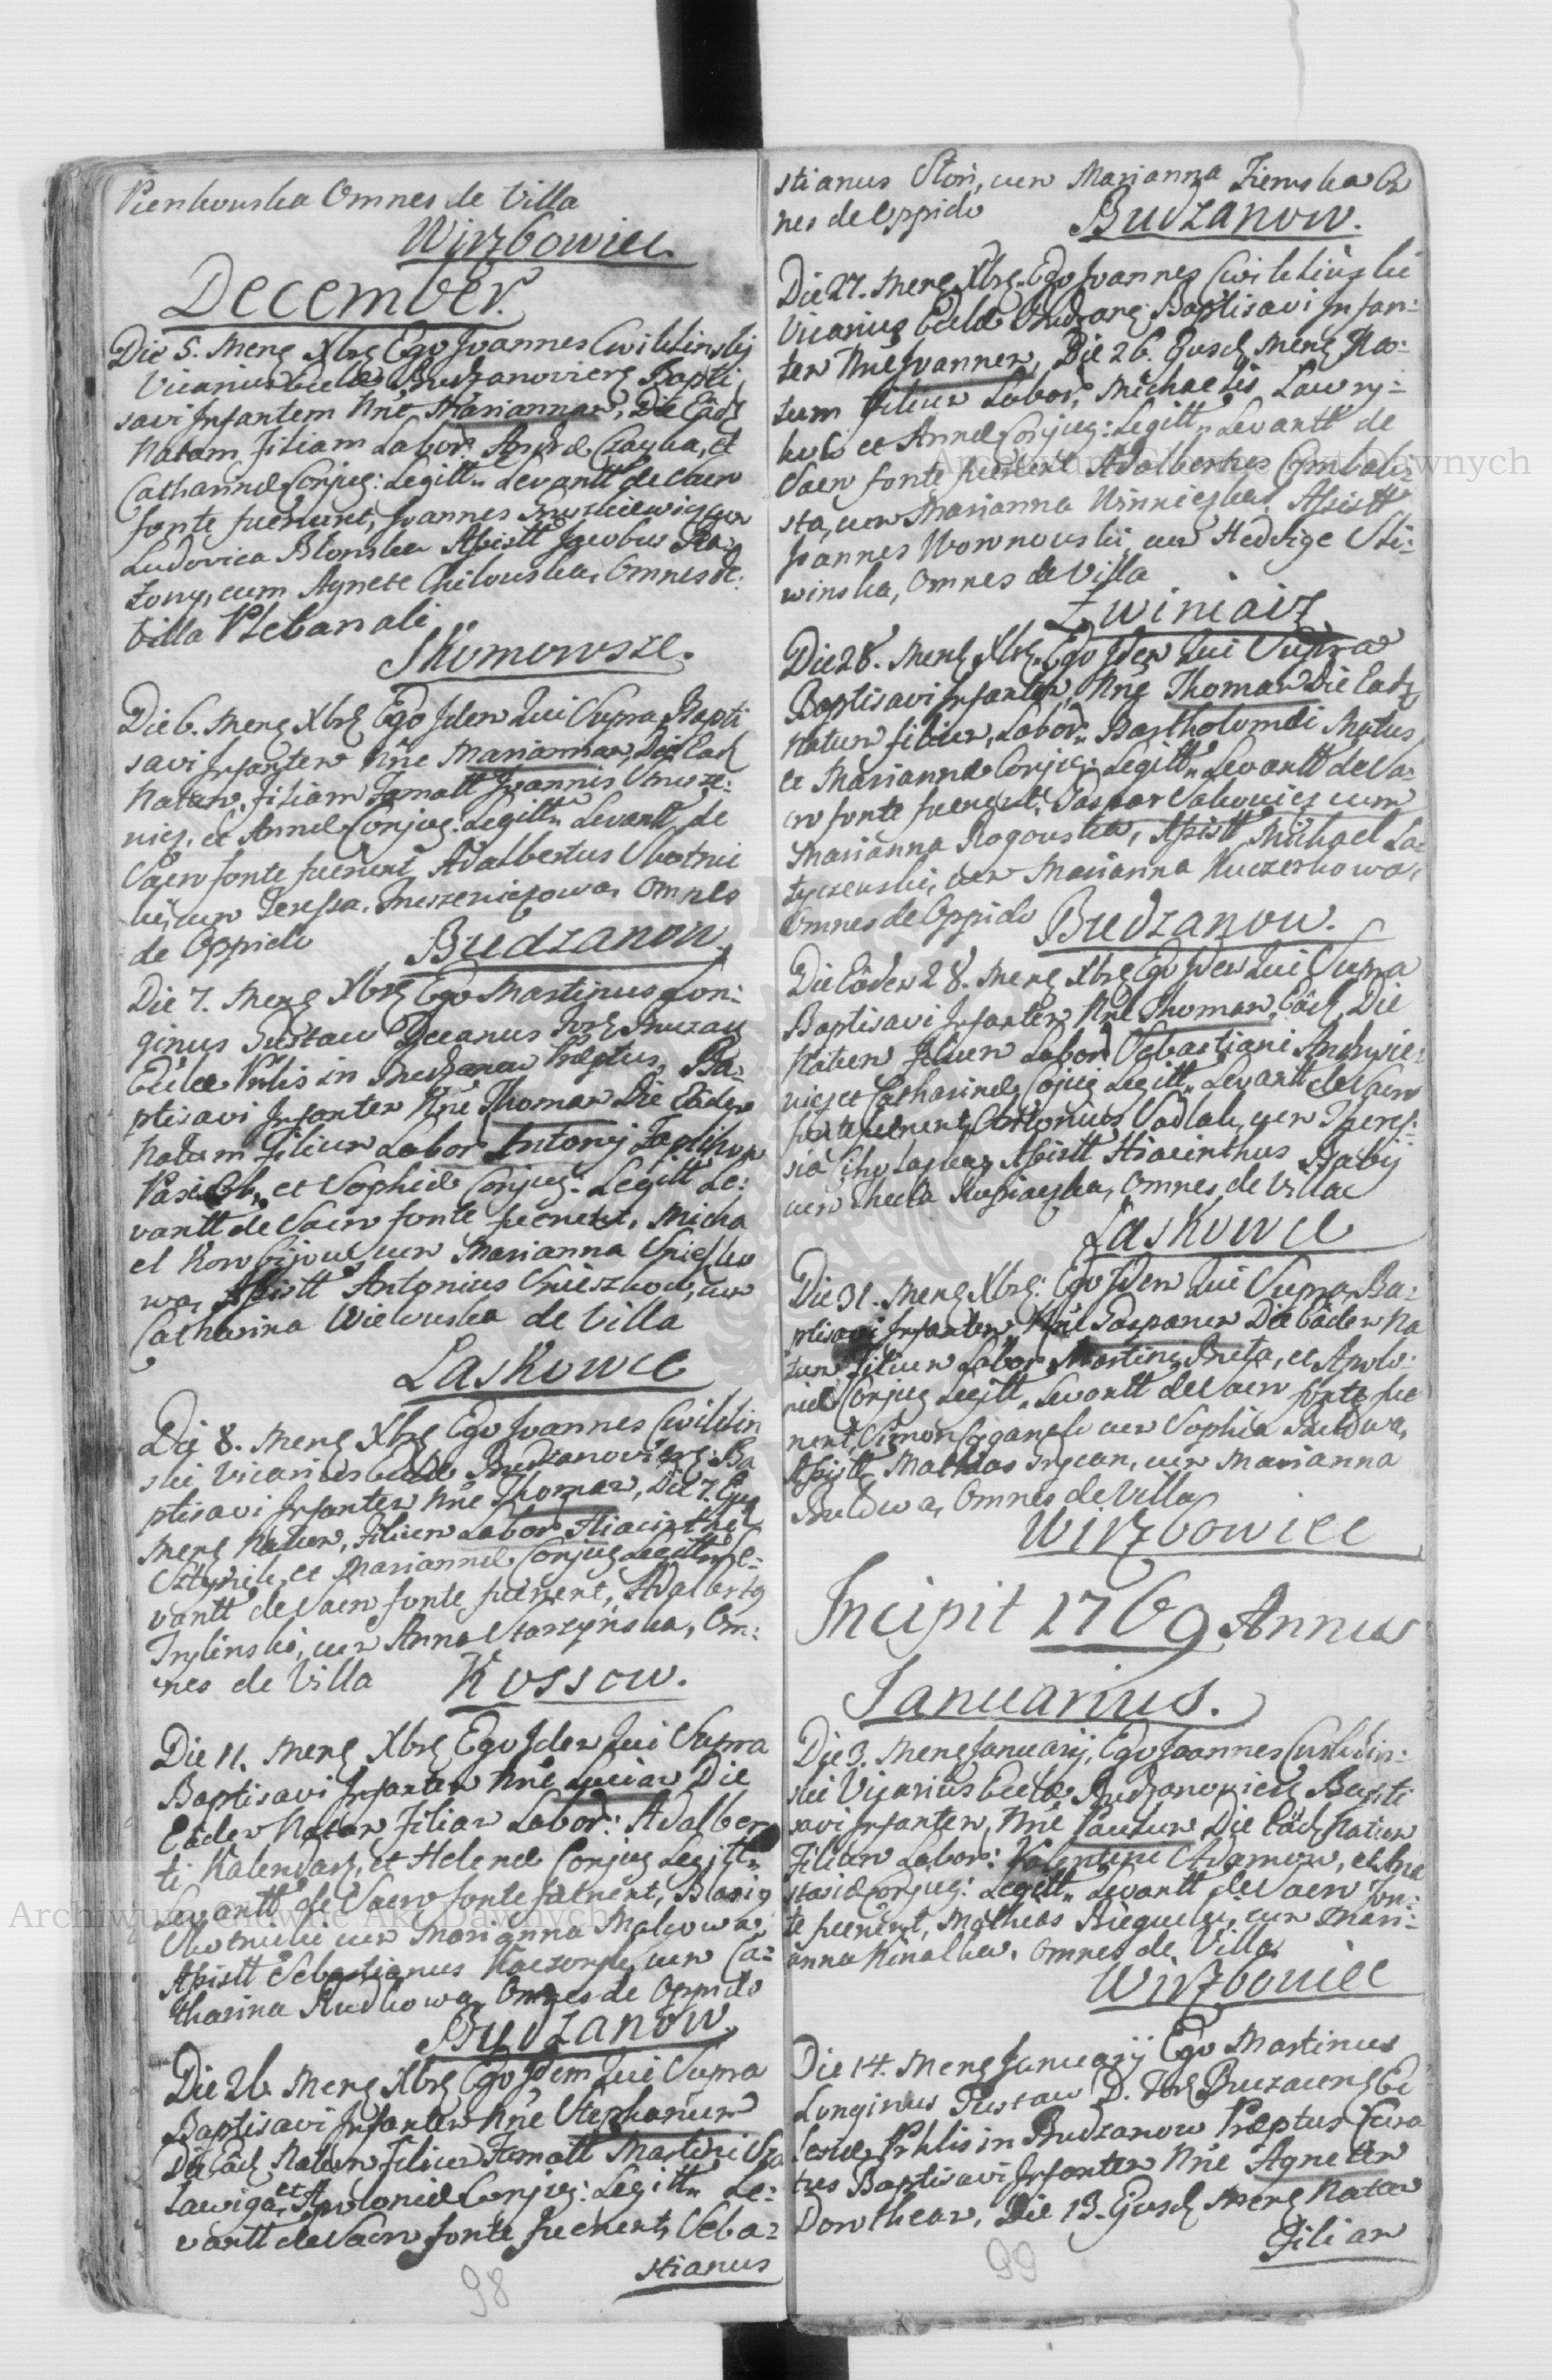 Pienkowska Omnes de Villa
Wirzbowiec.
December.
Die 5. Mens Xbris Ego Joannes Cwiklinskij
Vicarius Eccles Budzanoviens Bapti
savi Infantem Nñe Mariannam, Die Eâd
Natam, Filiam Labor: Andreæ Czayka, et
Catharinæ Conjug: Legitt: Levantt de Sacro
fonte fuerunt, Joannes cum
Ludovica Blonska Assistt Jacobus
cum Agnete Chilowska, Omnes de
Villa Plebanali
Skomorosze.
Die 6. Mens Xbris Ego Idem Qui Supra Bapti
savi Infantem Nñe Mariannam, Die Ead
Natam, Filiam Famatt Joannis
et Annæ Conjug: Legitt: Levantt de
Sacro fonte fuerunt Adalbertus Skotnic
ki, cum Teressa, Omnes
de Oppido Budzanow.
Die 7. Mens Xbris Ego Martinus Lon:
ginus Tustaw Decanus
Eccles in Budzanow Præptus, Ba:
ptisavi Infantem Nñe Thomam Die Eâdem
Natum Filium Labor Antonij
et Sophiæ Conjug: Legitt Le:
vantt de Sacro fonte fuerunt, Micha
el cum Marianna
wa, Assistt Antonius cum
Catharina Wielowska de Villa
Laskowce
Die 8. Mens Xbris Ego Joannes Cwiklin
ski Vicarius Eccles Budzanoviens: Ba
ptisavi Infantem Nñe Thomam, Die 7. Ejusd
Mens Natum, Filium Labor Hiacinthi
et Mariannæ Conjug Legitt Le:
vantt de Sacro fonte fuerunt, Adalbertus
Trylinski, cum Anna Starzynska, Om:
nes de Villa Kossow.
Die 11. Mens Xbris Ego Idem Qui Supra
Baptisavi Infantem Nñe Luciam Die
Eâdem Natam Filiam Labor: Adalber
ti Kalendarz, et Helenæ Conjug Legitt:
Levantt de Sacro fonte fuerunt, Blasius
Skotnicki cum Marianna Malcowa,
Assistt Sebastianus cum Ca:
tharina Rudkowa, Omnes de Oppido
Budzanow.
Die 26 Mens Xbris Ego Idem Qui Supra
Baptisavi Infantem Nñe Stephanum
Die Eâd Natum Filium Famatt Martini
et Apoloniæ Conjug: Legitt: Le:
vantt de Sacro fonte fuerunt, Seba:
stianus
98
stianus Ston, cum Marianna Ziemska Om
nes de Oppido Budzanow.
Die 27. Mens Xbris Ego Joannes Cwiklinski
Vicarius Eccles Budzans Baptisavi Infan:
tem Nñe Joannem, Die 26. Ejusd Mens Na:
tum Filium Labor, Michaelis Lawry:
kow et Annæ Conjug: Legitt: Levantt de
Sacro fonte fuerunt Adalbertus Cymbali:
sta, cum Marianna Winniczka, Assistt
Joannes Wownowski, cum Hedvige Sli:
winska, Omnes de Villa
Zwiniacz
Die 28. Mens Xbris Ego Idem Qui Supra
Baptisavi Infantem, Nñe Thomam Die Ead
Natum Filium, Labor: Bartholomæi Matus
et Mariannæ Conjug: Legitt: Levantt de Sa:
cro fonte fuerunt, Caspar Sakowicz cum
Marianna Rogowska, Assistt Michael La:
tyczewski, cum Marianna Kuczerkowa,
Omnes de Oppido Budzanow.
Die Eâdem 28. Mens Xbris Ego Idem Qui Supra
Baptisavi Infantem Nñe Thomam, Eâd, Die
Natum Filium Labor Sebastiani
et Catharinæ Cojug Legitt: Levantt de Sacro
fonte fuerunt, Antonius Sadlak, cum Theres:
sia Assistt Hiacinthus Baby
cum Thecla Omnes de Villa
Laskowce
Die 31. Mens Xbris: Ego Idem Qui Supra Ba:
ptisavi Infantem Nñe Casparum Die Eâdem Na
tum Filium Labor Martini Buta, et Apolo:
niæ Conjug Legitt: Levantt de Sacro fonte fue
runt, Simon Cyganek cum Sophia Buldwa,
Assistt Mathias Drycan, cum Marianna
Buldwa, Omnes de Villa
Wirzbowiec
Incipit 1769 Annus
Januarius.
Die 3. Mens Januarij, Ego Joannes Cwiklin:
ski Vicarius Eccles Budzanoviens Bapti
savi Infantem, Nñe Paulum Die Eâd Natum
Filium Labor: Valentini Adamow, et Ana
stasiæ Conjug: Legitt: Levantt de Sacro Fon:
te fuerunt, Matheas cum Mari:
anna Kinalka, Omnes de Villa
Wirzbowiec
Die 14. Mens Januarij Ego Martinus
Longinus Tustaw D. Ec
clesiæ in Budzanow Præptus Cura
tus Baptisavi Infantem Nñe Agnetem
Dorotheam, Die 13. Ejusd Mens Natam
Filiam
99
Archiwum Główne Akt Dawnych
Archiwum Główne Akt Dawnych